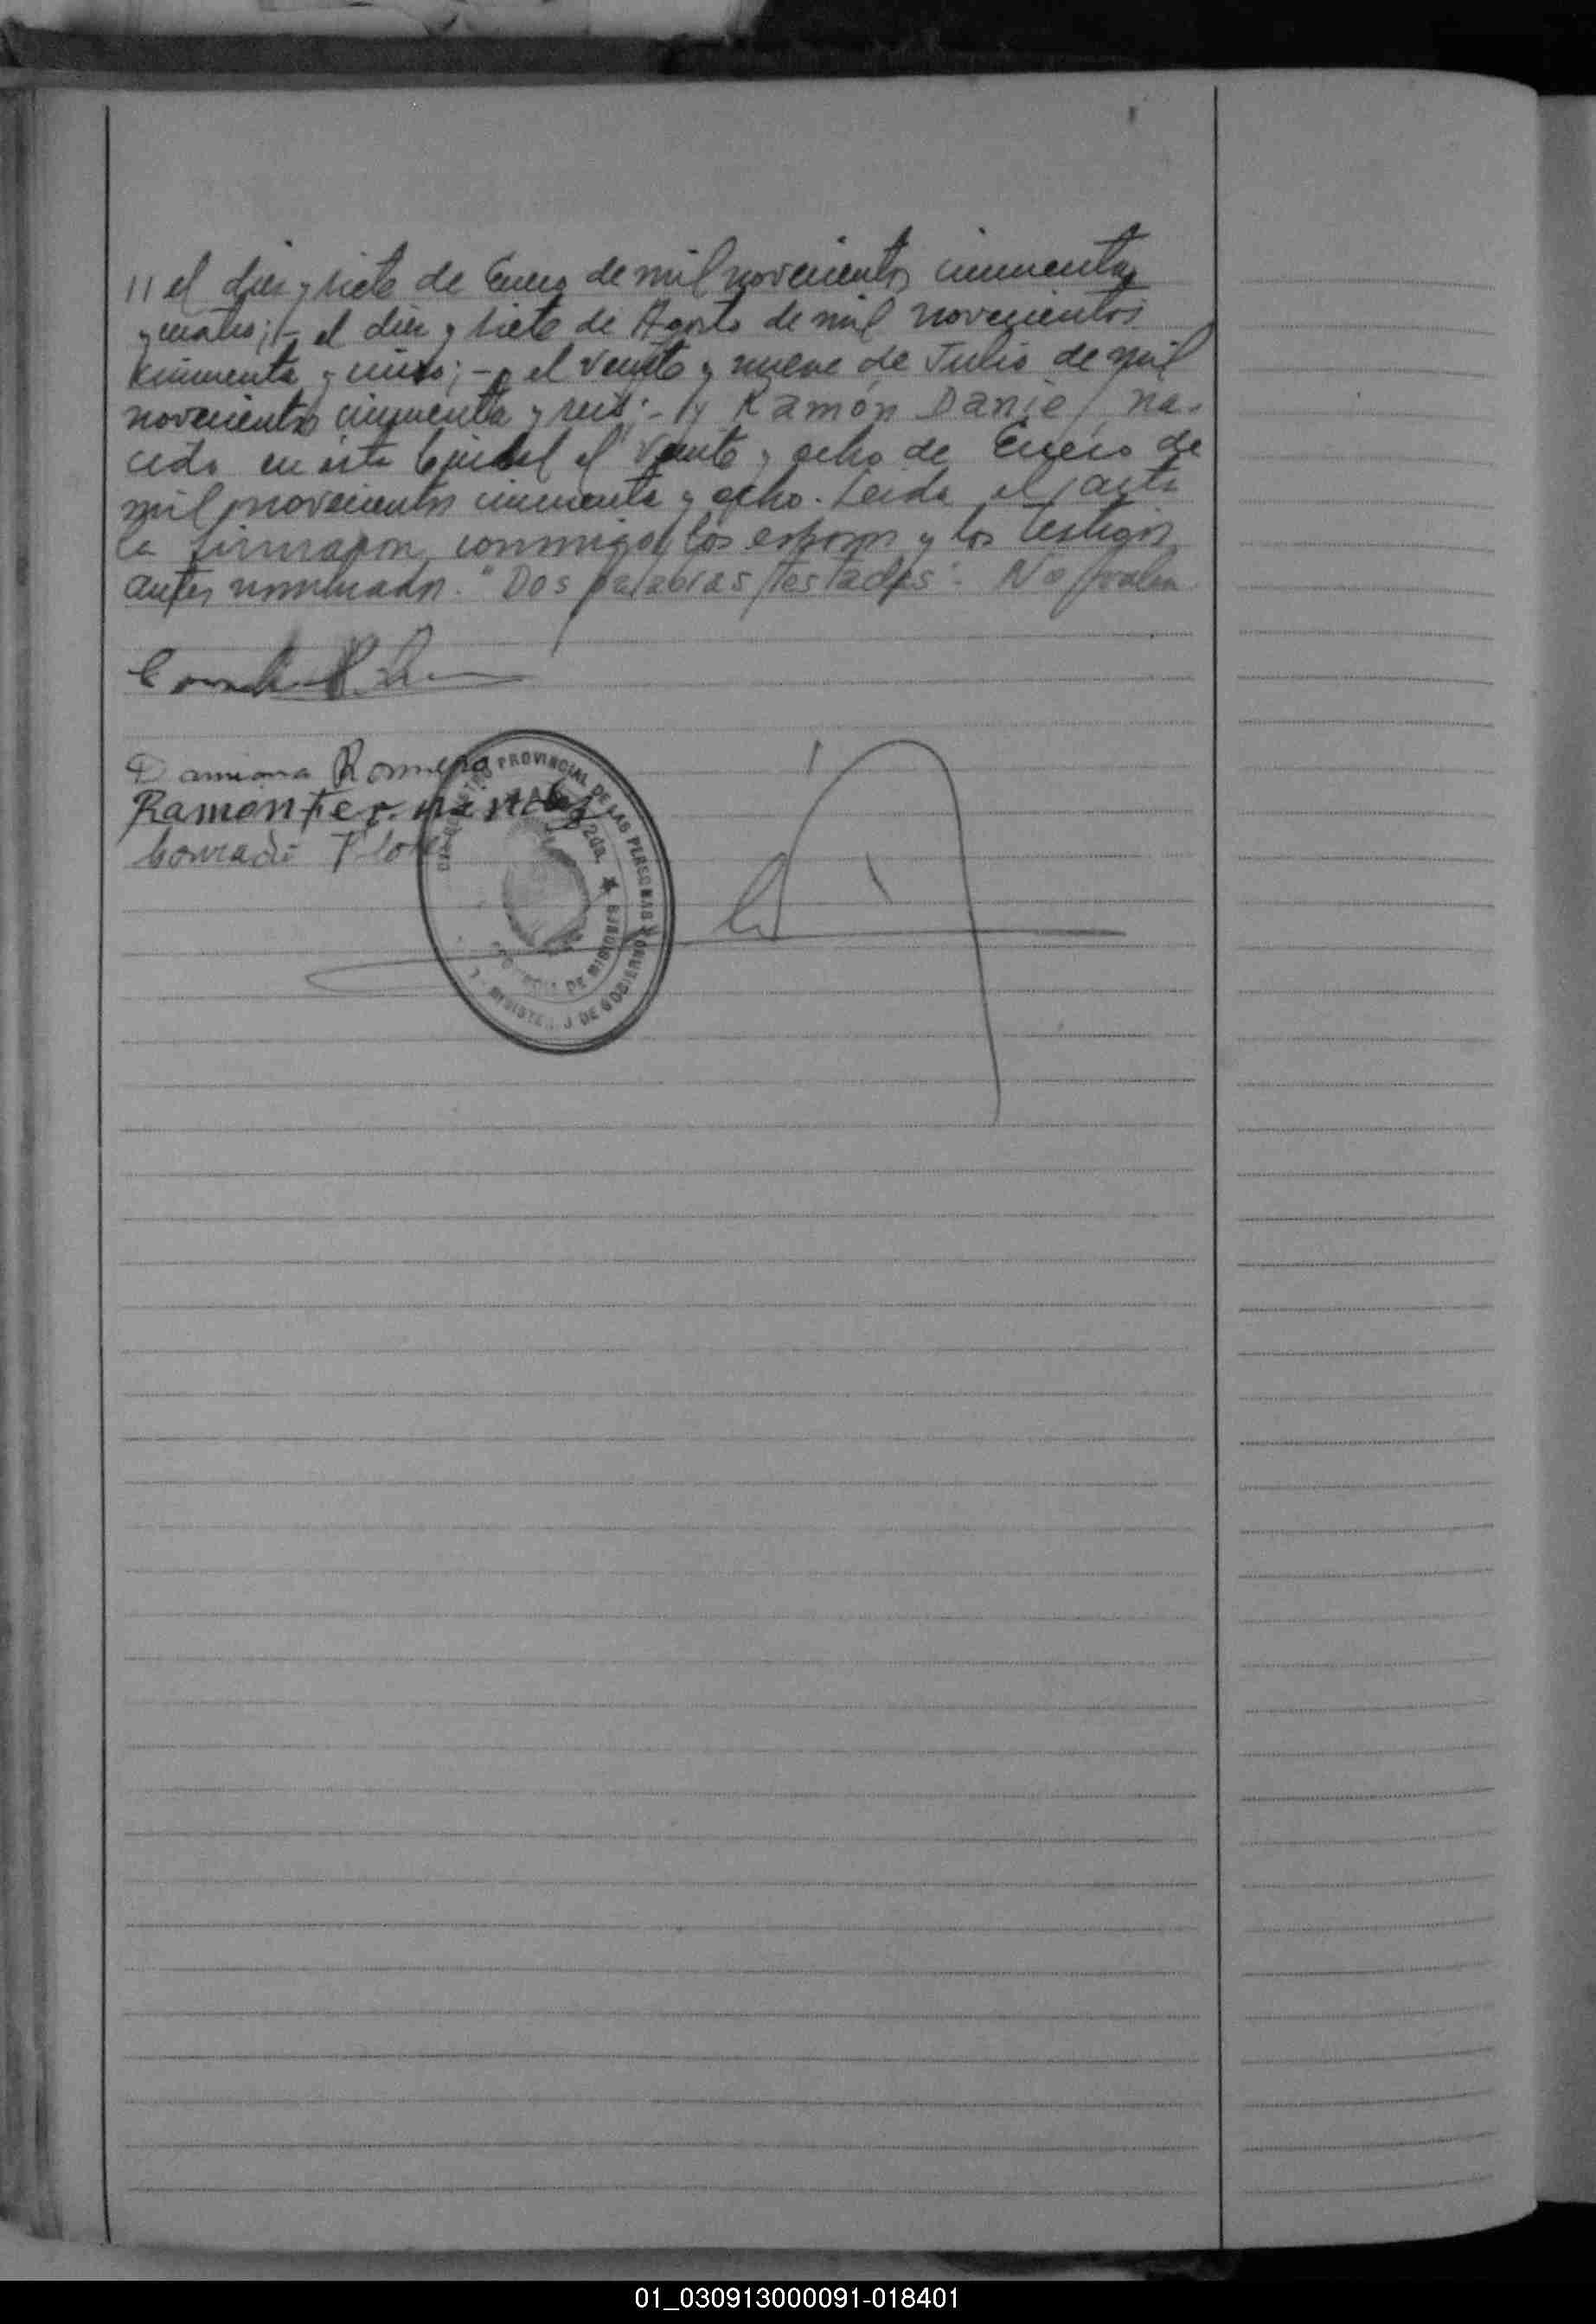 // el diez y siete de Enero de mil novecientos cincuenta
y cuatro; - el diez y siete de Agosto de mil novecientos
cincuenta y cinco; - el veinte y nueve de Julio de mil
novecientos cincuenta y seis; - y Ramón Daniel, na-
cido en esta Capital el veinte y ocho de Enero de
mil novecientos cincuenta y ocho. Leida el acta
la firmaron conmigo los esposos y los testigos
antes nombrados. "Dos palabras testadas": No valen
Damiana Romero
Ramon Fernandez
Conrado Flores
REGISTRO PROVINCIAL DE LAS PERSONAS
PROVINCIA DE MISIONES
MINISTERIO DE GOBIERNO
01_030913000091-018401